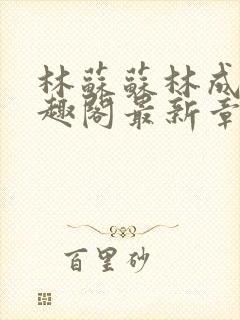 林蘇蘇林成
趣閣最新章
百里砂